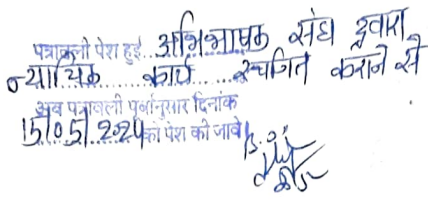 पत्रावली पेश हुई अभिभाषक संघ द्वारा
न्यायिक कार्य स्थगित कराने से
अब पत्रावली पूर्वानुसार दिनांक
15/05/2024 को पेश की जावे।